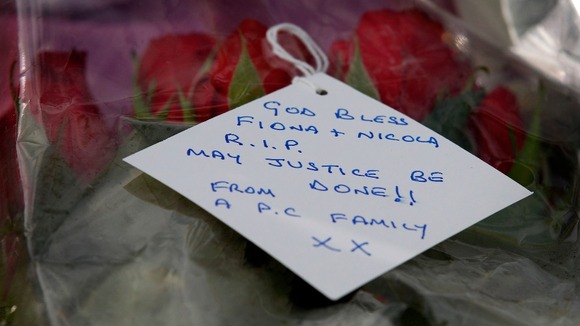 GOD BLESS
FIONA + NICOLA
R.I.P.
MAY JUSTICE BE
DONE!!
FROM
A P.C FAMILY
XX